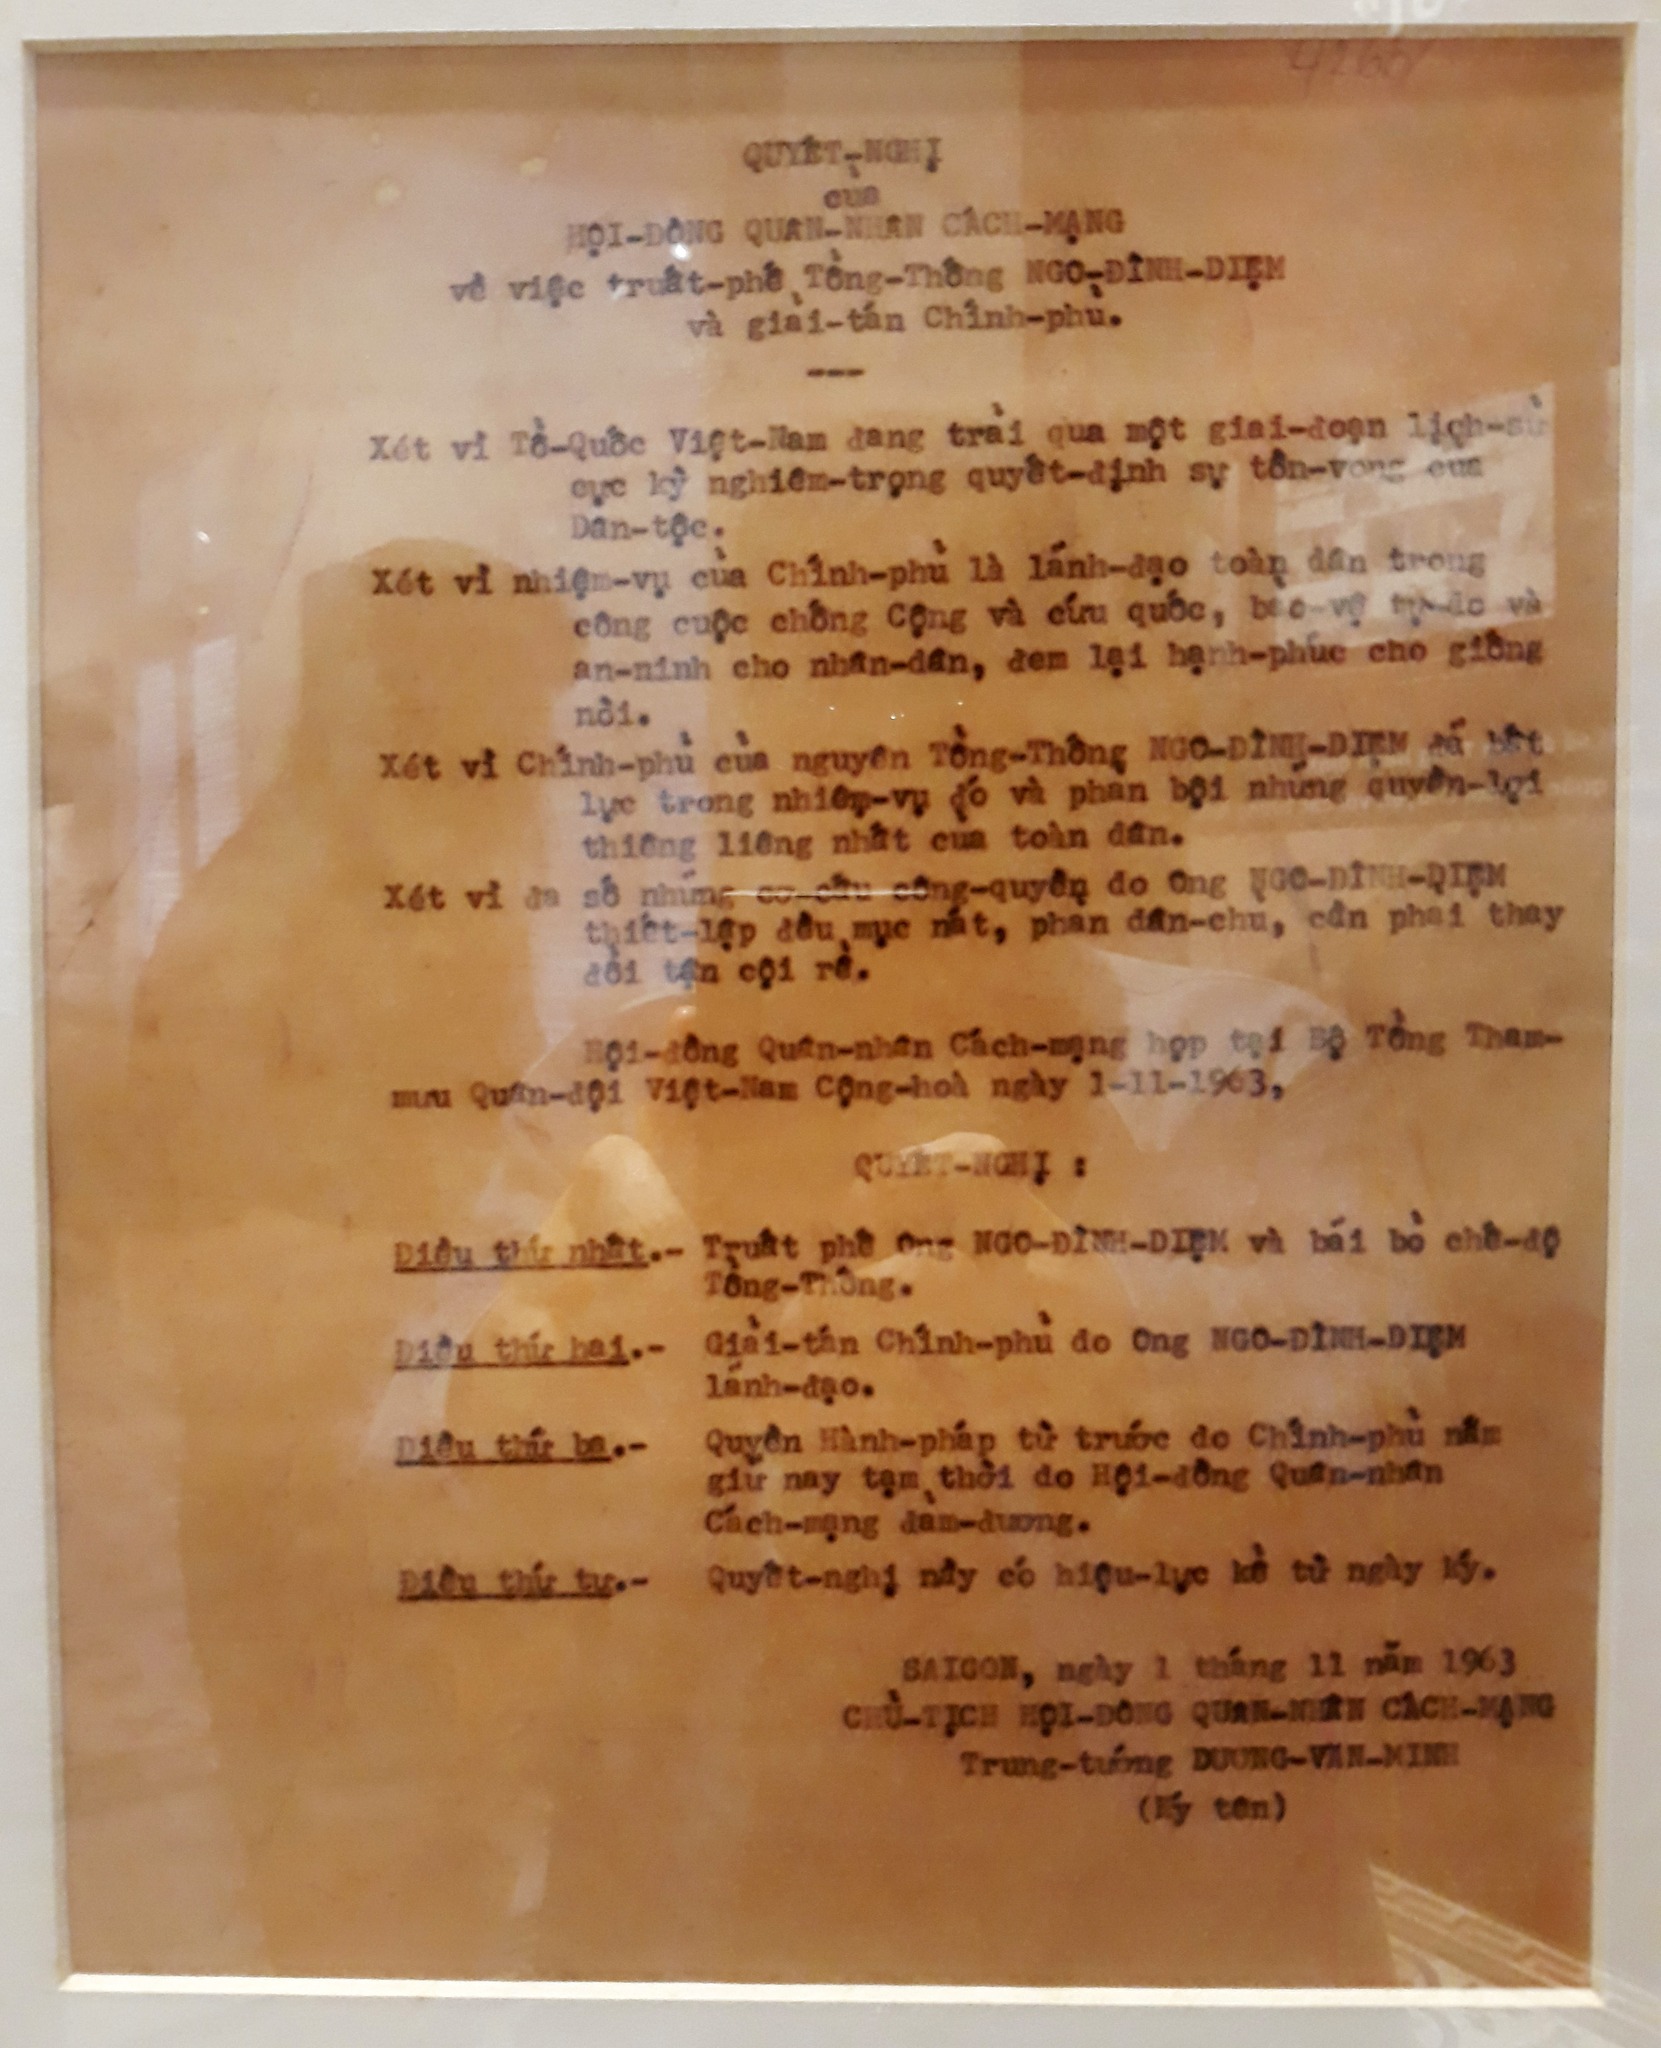 QUYẾT-NGHỊ
của
HỘI-ĐỒNG QUÂN-NHÂN CÁCH-MẠNG
về việc truất-phế Tổng-Thống NGÔ-ĐÌNH-DIỆM
và giải-tán Chính-phủ.
---
Xét vì Tổ-Quốc Việt-Nam đang trải qua một giai-đoạn lịch-sử
cực kỳ nghiêm-trọng quyết-định sự tồn-vong của
Dân-tộc.
Xét vì nhiệm-vụ của Chính-phủ là lãnh-đạo toàn dân trong
công cuộc chống Cộng và cứu quốc, bảo-vệ tự-do và
an-ninh cho nhân-dân, đem lại hạnh-phúc cho giống
nòi.
Xét vì Chính-phủ của nguyên Tổng-Thống NGÔ-ĐÌNH-DIỆM đã bất
lực trong nhiệm-vụ đó và phản bội những quyền-lợi
thiêng liêng nhất của toàn dân.
Xét vì đa số những cơ-cấu công-quyền do Ông NGÔ-ĐÌNH-DIỆM
thiết-lập đều mục nát, phản dân-chủ, cần phải thay
đổi tận cội rễ.
Hội-đồng Quân-nhân Cách-mạng họp tại Bộ Tổng Tham-
mưu Quân-đội Việt-Nam Cộng-hoà ngày 1-11-1963,
QUYẾT-NGHỊ :
Điều thứ nhất.- Truất phế Ông NGÔ-ĐÌNH-DIỆM và bãi bỏ chế-độ
Tổng-Thống.
Điều thứ hai.- Giải-tán Chính-phủ do Ông NGÔ-ĐÌNH-DIỆM
lãnh-đạo.
Điều thứ ba.- Quyền Hành-pháp từ trước do Chính-phủ nắm
giữ nay tạm thời do Hội-đồng Quân-nhân
Cách-mạng đảm-đương.
Điều thứ tư.- Quyết-nghị nầy có hiệu-lực kể từ ngày ký.
SAIGON, ngày 1 tháng 11 năm 1963
CHỦ-TỊCH HỘI-ĐỒNG QUÂN-NHÂN CÁCH-MẠNG
Trung-tướng DƯƠNG-VĂN-MINH
(Ký tên)